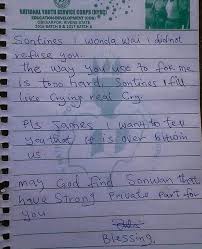 NATIONAL YOUTH SERVICE CORPS (NYSC)
EDUCATION DEVELOPMENT (CDS)
2016 BATCH B & 2017 BATCH A
Somtines i wonda wai i didnot
refuse you.
the way you use to for me
is too hard, Somtines i fill
like Crying real Cry.
Pls James i want to tell
you that it is over bitwin
us
may God find Somwan that
have Strong Private Part for
you
Blessing.